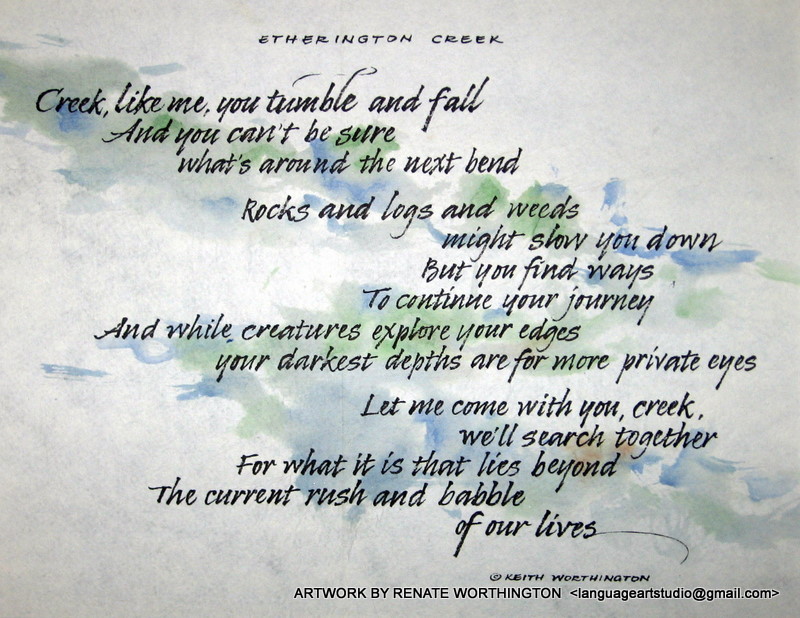 ETHERINGTON CREEK
Creek, like me, you tumble and fall
And you can't be sure
what's around the next bend
Rocks and logs and weeds
might slow you down
But you find ways
To continue your journey
And while creatures explore your edges
your darkest depths are for more private eyes
Let me come with you, creek,
we'll search together
For what it is that lies beyond
The current rush and babble
of our lives
© KEITH WORTHINGTON
ARTWORK BY RENATE WORTHINGTON <languageartstudio@gmail.com>